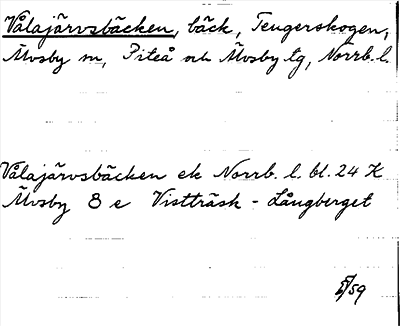 Vålajärvsbäcken, bäck, Teugerskogen,
Älvsby sn, Piteå och Älvsby tg, Norrb. l.
Vålajärvsbäcken ek Norrb. l. bl. 24 K
Älvsby 8 e Vistträsk - Långberget
/59